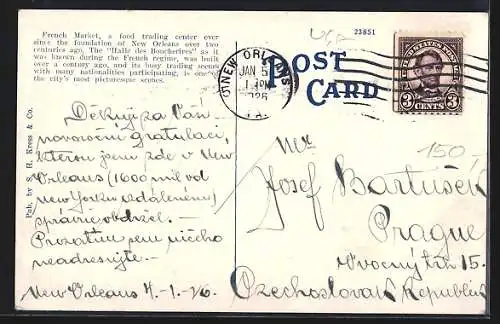 French Market, a food trading center ever
since the foundation of New Orleans over two
centuries ago. The "Halle des Boucheries" as it
was known during the French regime, was built
over a century ago, and its busy trading scenes
with many nationalities participating, is one of
the city's most picturesque scenes.
Pub. by S. H. Kress & Co.
23851
POST
CARD
NEW ORLEANS
JAN 5
1 PM
1926
LA
UNITED STATES POSTAGE
3 CENTS 3
150,-
Děkuji za Vaši
novoroční gratulaci,
kterou jsem zde v New
Orleans (1600 mil od
New Yorku vzdáleném)
správně obdržel. —
Prozatím sem ničeho
neadresujte. —
New Orleans 4.-1.-26.
Mr
Josef Bartušek
Prague
Ovocný trh 15.
Czechoslovak Republik